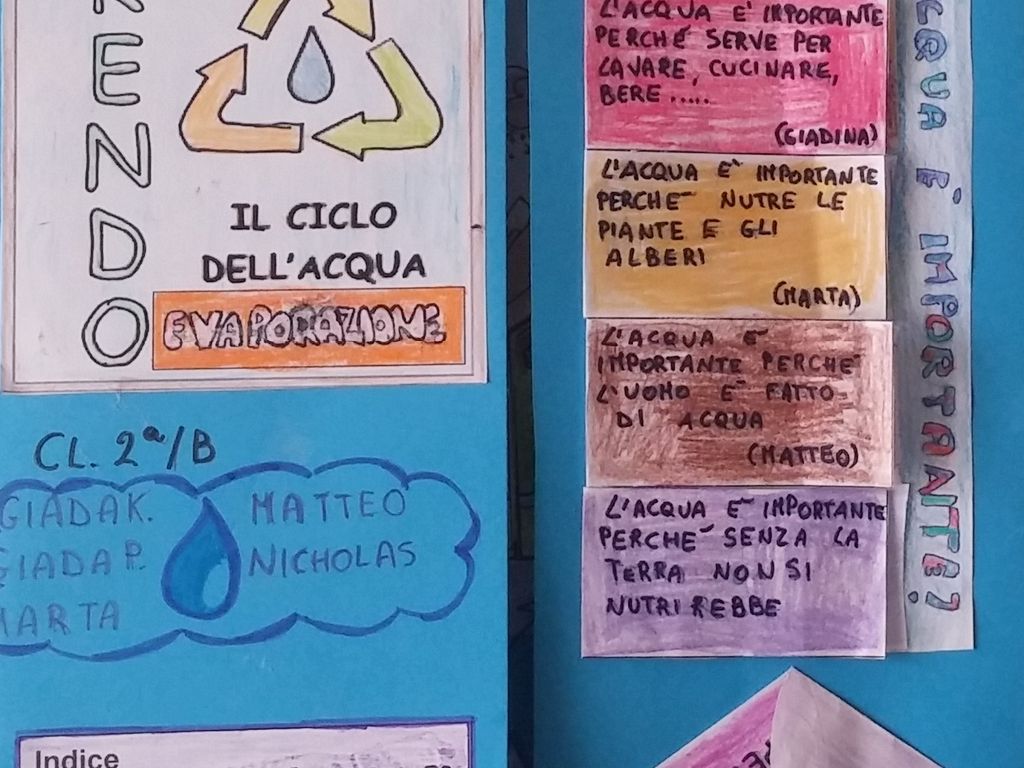 ENDO
IL CICLO
DELL'ACQUA
EVAPORAZIONE
CL. 2ª/B
GIADA K.
GIADA P.
MARTA
MATTEO
NICHOLAS
Indice
L'ACQUA E' IMPORTANTE
PERCHÉ SERVE PER
LAVARE, CUCINARE,
BERE.....
(GIADINA)
L'ACQUA E' IMPORTANTE
PERCHE' NUTRE LE
PIANTE E GLI
ALBERI
(MARTA)
L'ACQUA E'
IMPORTANTE PERCHE'
L'UOMO E' FATTO
DI ACQUA
(MATTEO)
L'ACQUA E' IMPORTANTE
PERCHE' SENZA LA
TERRA NON SI
NUTRIREBBE
CQUA È IMPORTANTE?